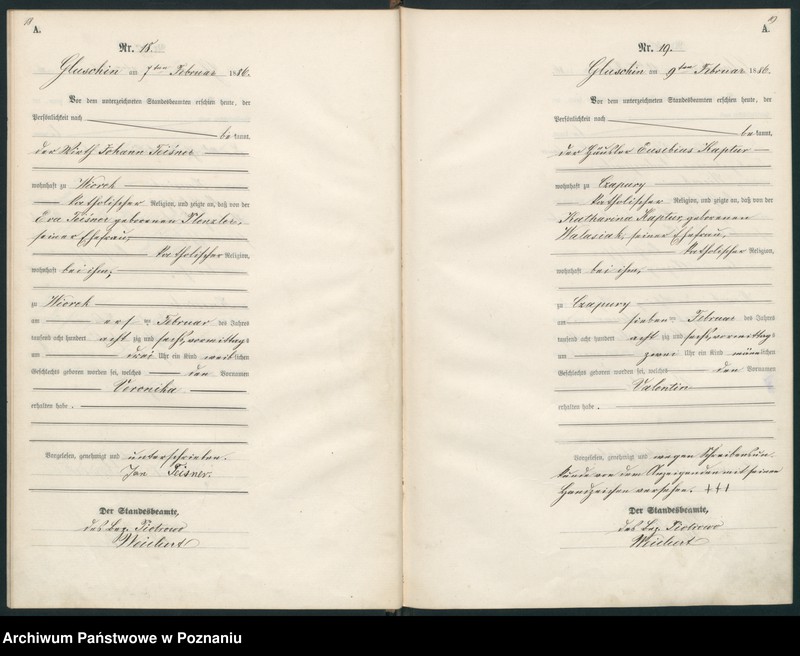 18
A.
Nr. 18.
Gluschin am 7ten Februar 1886.
Vor dem unterzeichneten Standesbeamten erschien heute, der
Persönlichkeit nach
bekannt,
der Wirth Johann Tiesner
wohnhaft zu Wiorek
katholischer Religion, und zeigte an, daß von der
Eva Tiesner geborenen
seiner Ehefrau,
katholischer Religion,
wohnhaft bei ihm,
zu Wiorek
am Februar des Jahres
tausend acht hundert acht zig und sechs, vormittags
um drei Uhr ein Kind weiblichen
Geschlechts geboren worden sei, welches den Vornamen
Veronika
erhalten habe.
Vorgelesen, genehmigt und unterschrieben.
Jan Tisner.
Der Standesbeamte,
des Bez. Piotrowo
Weichert
19
A.
Nr. 19.
Gluschin am 9ten Februar 1886.
Vor dem unterzeichneten Standesbeamten erschien heute, der
Persönlichkeit nach
bekannt,
der Häusler Eusebius Kaptur
wohnhaft zu Czapury
katholischer Religion, und zeigte an, daß von der
Katharina Kaptur, geborenen
Walasiak, seiner Ehefrau,
katholischer Religion,
wohnhaft bei ihm,
zu Czapury
am sieben ten Februar des Jahres
tausend acht hundert acht zig und sechs, vormittags
um zwei Uhr ein Kind männlichen
Geschlechts geboren worden sei, welches den Vornamen
Valentin
erhalten habe.
Vorgelesen, genehmigt und wegen Schreibensun-
kunde von dem Anzeigenden mit seinem
Handzeichen versehen. +++
Der Standesbeamte,
des Bez. Piotrowo
Weichert
Archiwum Państwowe w Poznaniu